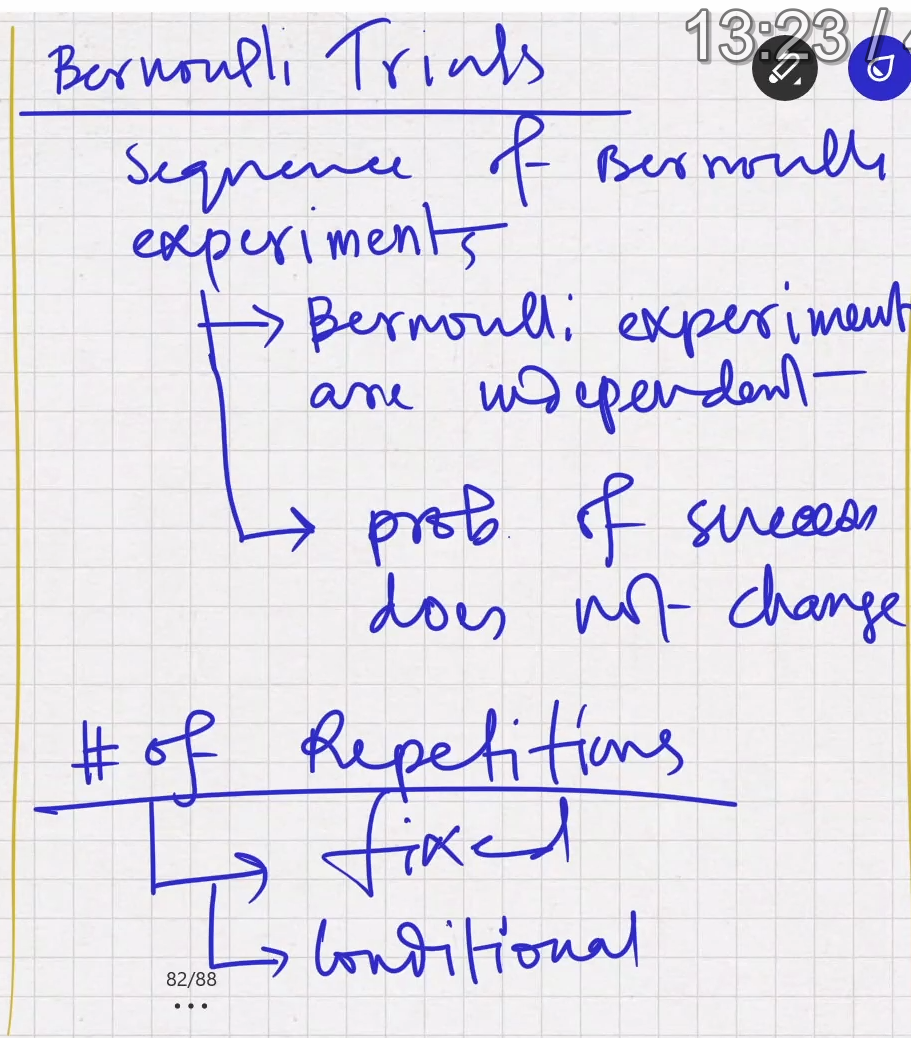 13:23 /
Bernoulli Trials
Sequence of Bernoulli
experiments
→ Bernoulli experiment
are independent
→ prob. of success
does not change
# of Repetitions
→ fixed
→ Conditional
82/88
•••